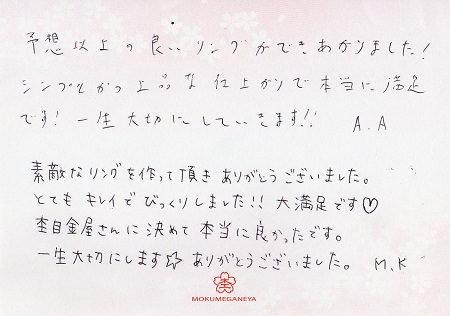 予想以上の良いリングができあがりました！
シンプルかつ上品な仕上がりで本当に満足
です！一生大切にしていきます!! A.A
素敵なリングを作って頂きありがとうございました。
とてもキレイでびっくりしました!! 大満足です♡
杢目金屋さんに決めて本当に良かったです。
一生大切にします☆ ありがとうございました。 M.K
杢
MOKUMEGANEYA